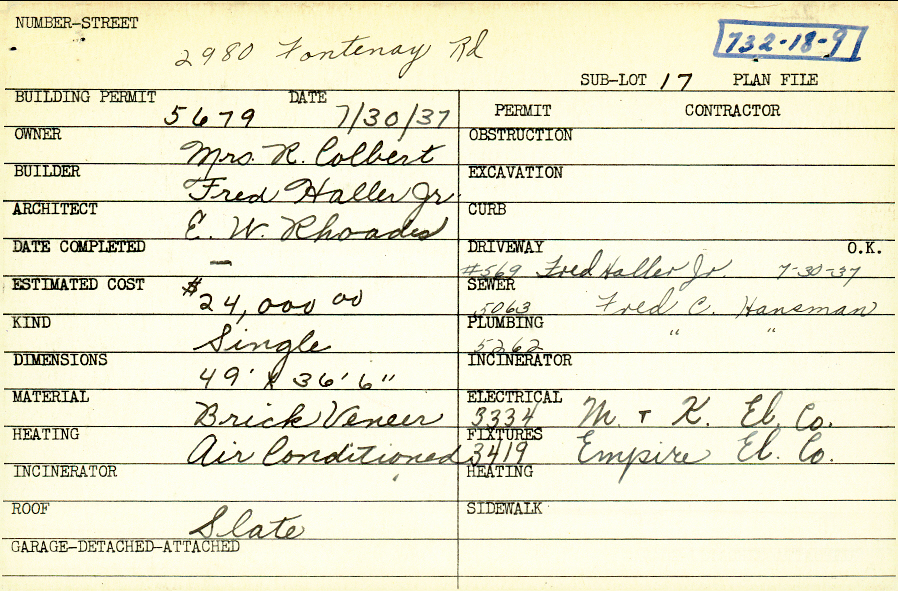 NUMBER-STREET
2980 Fontenay Rd
732-18-9
SUB-LOT 17 PLAN FILE
BUILDING PERMIT DATE
5679 7/30/37
PERMIT CONTRACTOR
OWNER
Mrs. R. Colbert
OBSTRUCTION
BUILDER
Fred Haller Jr.
EXCAVATION
ARCHITECT
E. W. Rhoades
CURB
DATE COMPLETED
—
DRIVEWAY O.K.
#569 Fred Haller Jr 7-30-37
ESTIMATED COST
$24,000 00
SEWER
5063 Fred C. Hansman
KIND
Single
PLUMBING
5262 " "
DIMENSIONS
49' x 36' 6"
INCINERATOR
MATERIAL
Brick Veneer
ELECTRICAL
3334 M. + K. El. Co.
HEATING
Air Conditioned
FIXTURES
3419 Empire El. Co.
INCINERATOR
HEATING
ROOF
Slate
SIDEWALK
GARAGE-DETACHED-ATTACHED